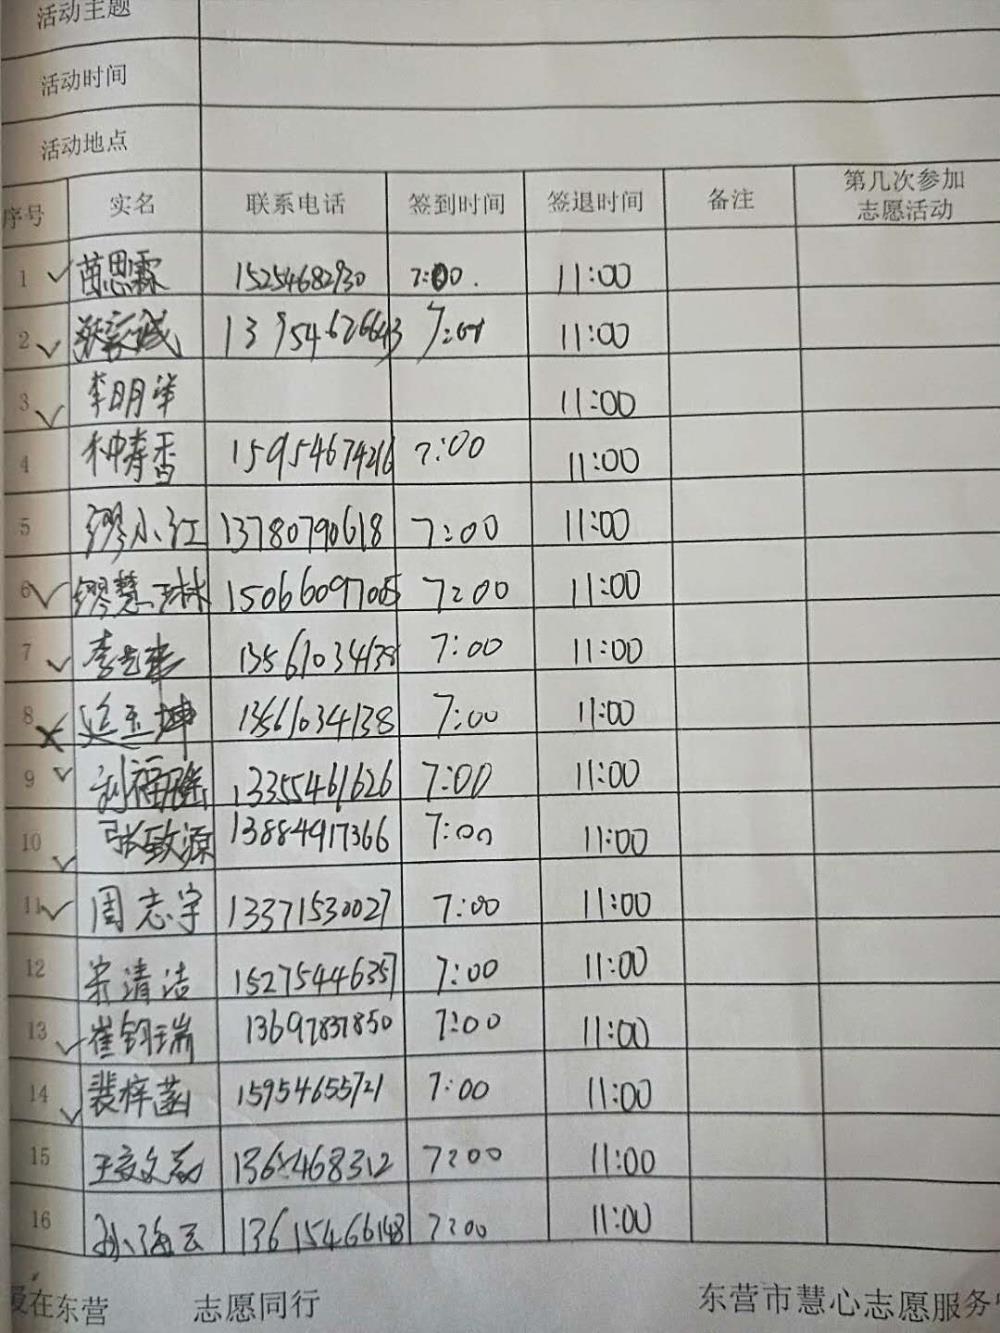 活动主题
活动时间
活动地点
序号 实名 联系电话 签到时间 签退时间 备注 第几次参加志愿活动
1 苗思霖 15254682930 7:00. 11:00
2 13954626643 7:00 11:00
3 李明华 11:00
4 仲寿香 15954674216 7:00 11:00
5 缪小红 13780790618 7:00 11:00
6 缪慧琳 15066097005 7:00 11:00
7 13561034138 7:00 11:00
8 延玉坤 13561034138 7:00 11:00
9 刘福隆 13355461626 7:00 11:00
10 张致源 13884917366 7:00 11:00
11 周志宇 13371530027 7:00 11:00
12 宋清洁 15275446357 7:00 11:00
13 崔钧瑞 13697837850 7:00 11:00
14 裴梓菡 15954655721 7:00 11:00
15 7:00 11:00
16 孙海云 13615466148 7:00 11:00
在东营 志愿同行 东营市慧心志愿服务